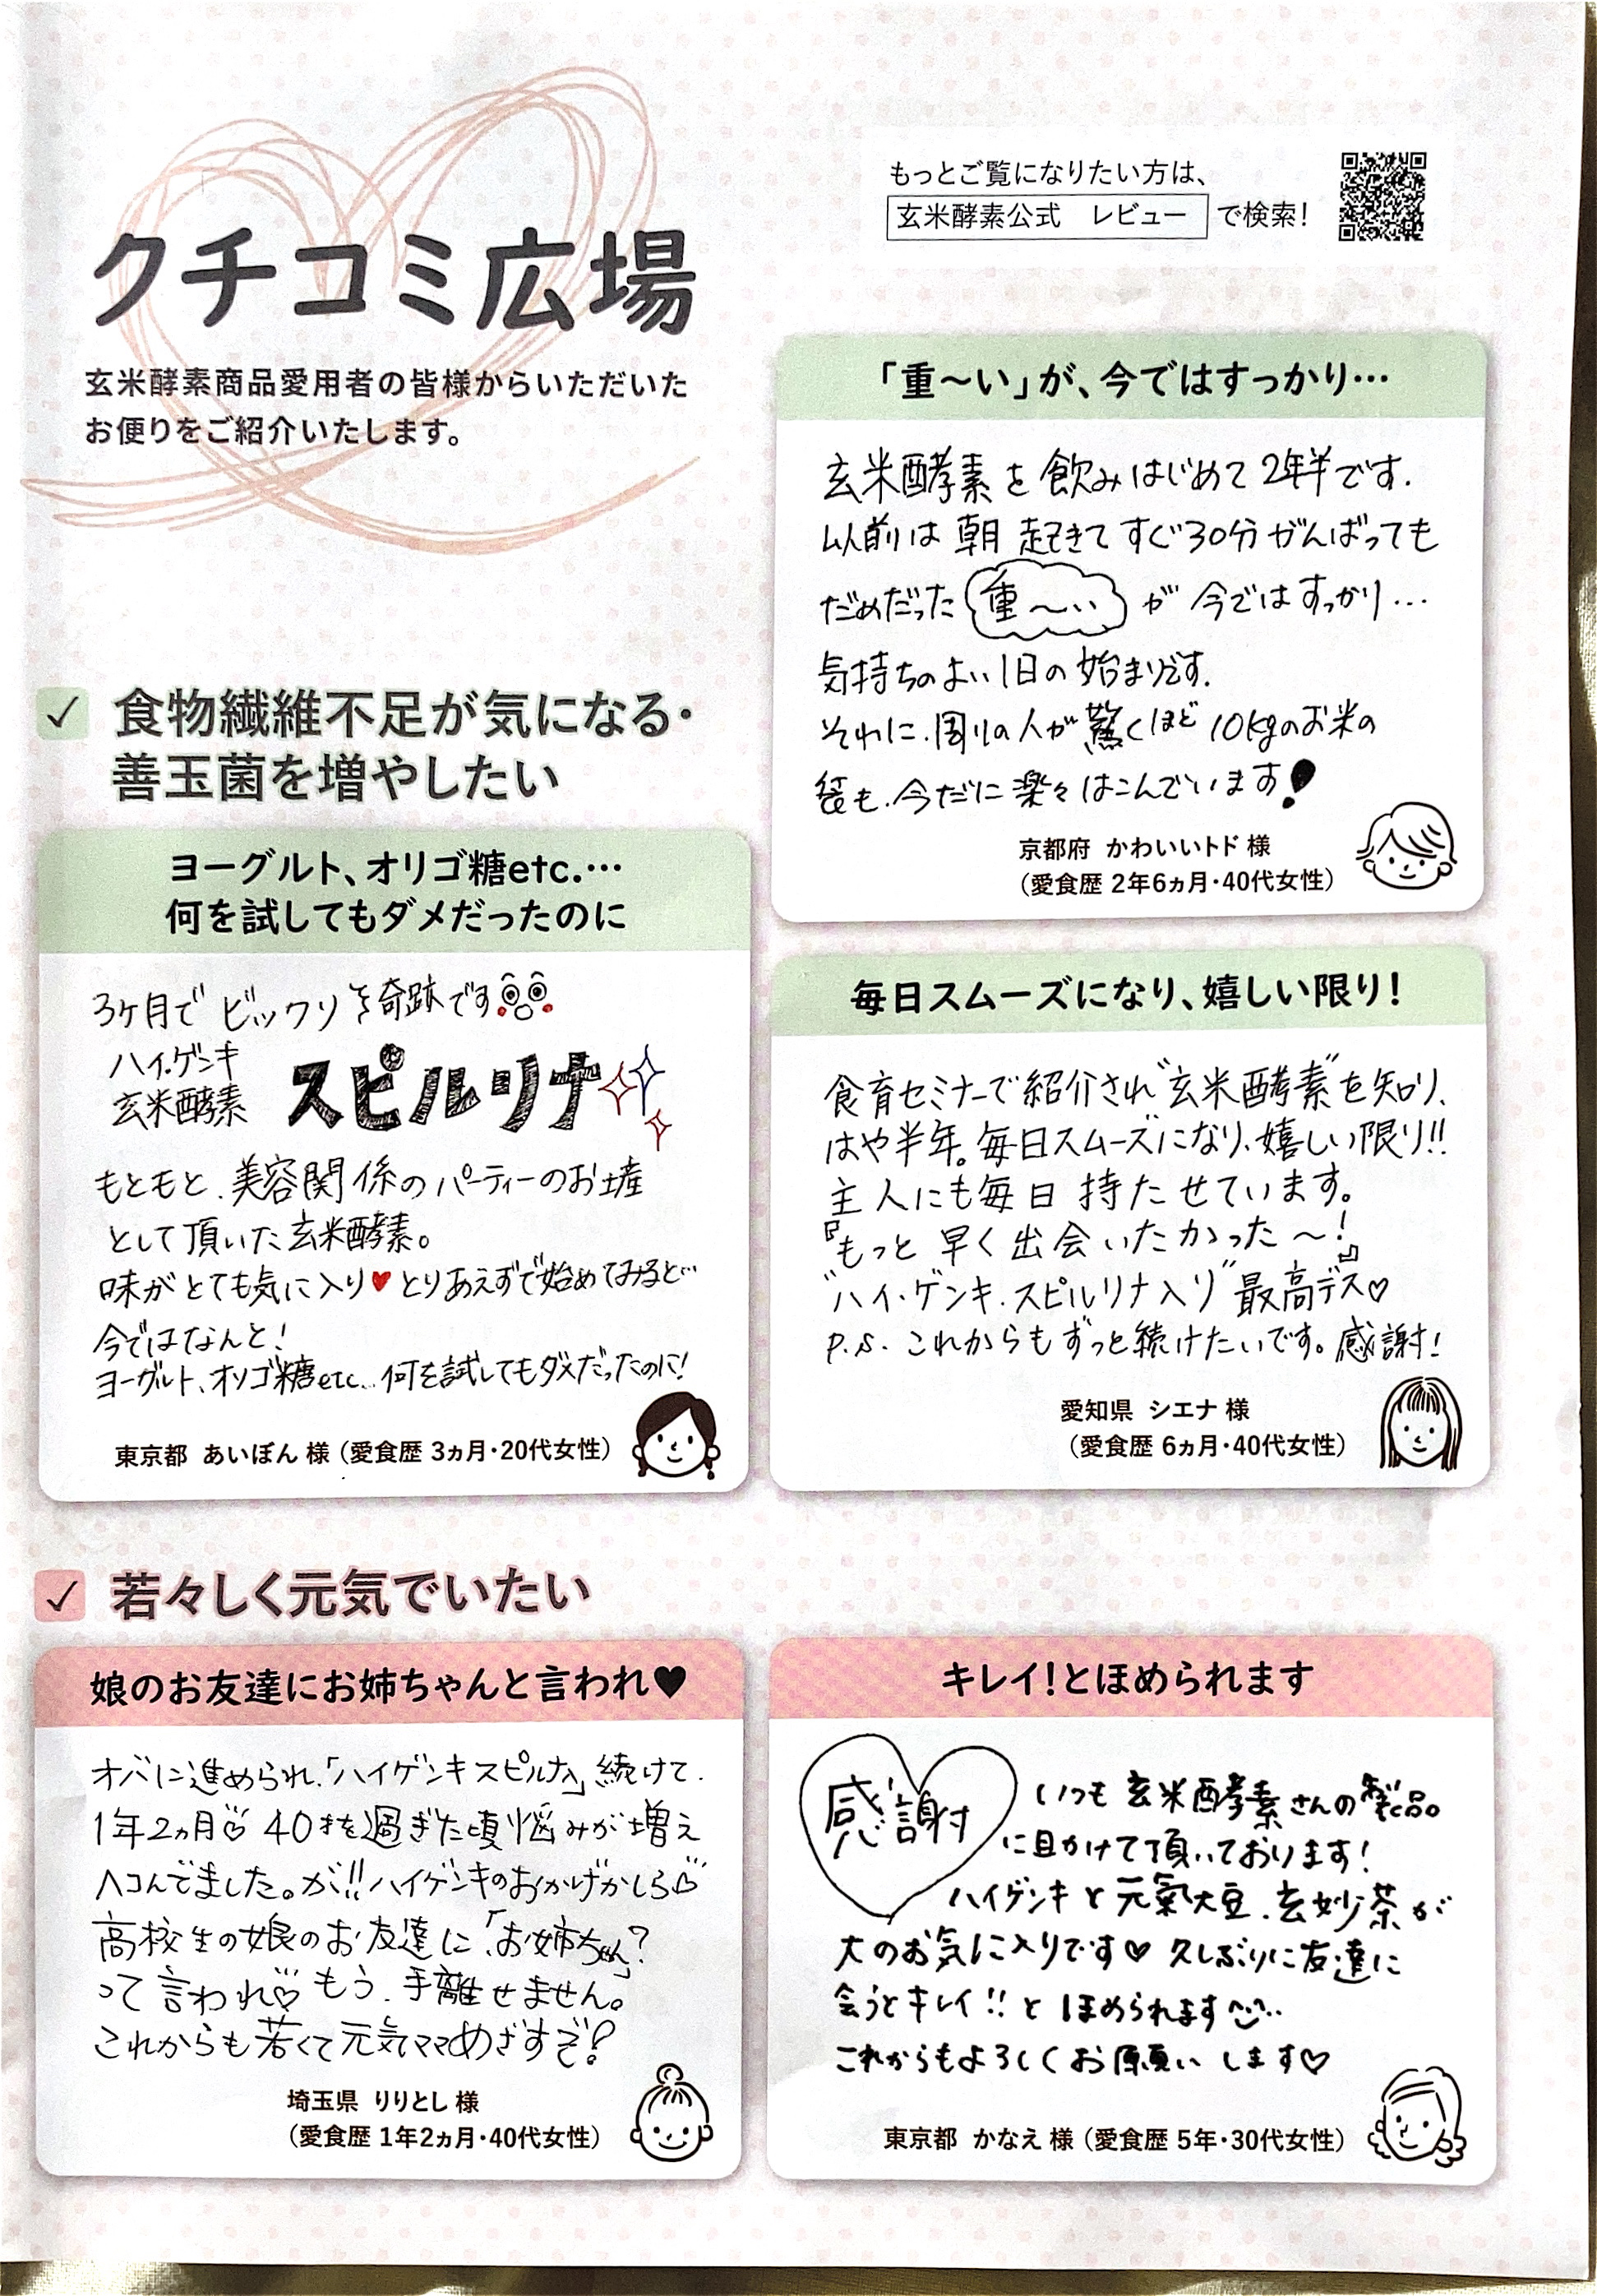 クチコミ広場
玄米酵素商品愛用者の皆様からいただいた
お便りをご紹介いたします。
もっとご覧になりたい方は、
玄米酵素公式　レビュー で検索！
「重〜い」が、今ではすっかり…
玄米酵素を飲みはじめて2年半です.
以前は朝起きてすぐ30分がんばっても
だめだった 重〜い が 今ではすっかり…
気持ちのよい1日の始まりです.
それに、周りの人が驚くほど10kgのお米の
袋も、今だに楽々はこんでいます!
京都府 かわいいトド 様
（愛食歴 2年6ヵ月・40代女性）
✓ 食物繊維不足が気になる・
善玉菌を増やしたい
ヨーグルト、オリゴ糖etc.…
何を試してもダメだったのに
3ヶ月で ビックリな奇跡です
ハイ・ゲンキ
玄米酵素 スピルリナ
もともと、美容関係のパーティーのお土産
として頂いた玄米酵素。
味がとても気に入り♥とりあえずで始めてみると…
今ではなんと！
ヨーグルト、オリゴ糖etc…何を試してもダメだったのに！
東京都 あいぼん 様（愛食歴 3ヵ月・20代女性）
毎日スムーズになり、嬉しい限り！
食育セミナーで紹介され“玄米酵素”を知り、
はや半年。毎日スムーズになり、嬉しい限り!!
主人にも毎日持たせています。
『もっと早く出会いたかった〜！』
“ハイ・ゲンキ.スピルリナ入り”最高デス♡
P.S. これからもずっと続けたいです。感謝！
愛知県 シエナ 様
（愛食歴 6ヵ月・40代女性）
✓ 若々しく元気でいたい
娘のお友達にお姉ちゃんと言われ♥
オバに進められ、「ハイゲンキスピルリナ」続けて.
1年2ヵ月♡ 40才を過ぎた頃悩みが増え
ヘコんでました。が!!ハイゲンキのおかげかしら♡
高校生の娘のお友達に、「お姉ちゃん?」
って言われ♡もう、手離せません。
これからも若くて元気ママめざすぞ!
埼玉県 りりとし 様
（愛食歴 1年2ヵ月・40代女性）
キレイ！とほめられます
感謝 いつも玄米酵素さんの製品
に助けて頂いております！
ハイゲンキと元氣大豆、玄妙茶が
大のお気に入りです♡ 久しぶりに友達に
会うとキレイ!!とほめられます
これからもよろしくお願いします♡
東京都 かなえ 様（愛食歴 5年・30代女性）